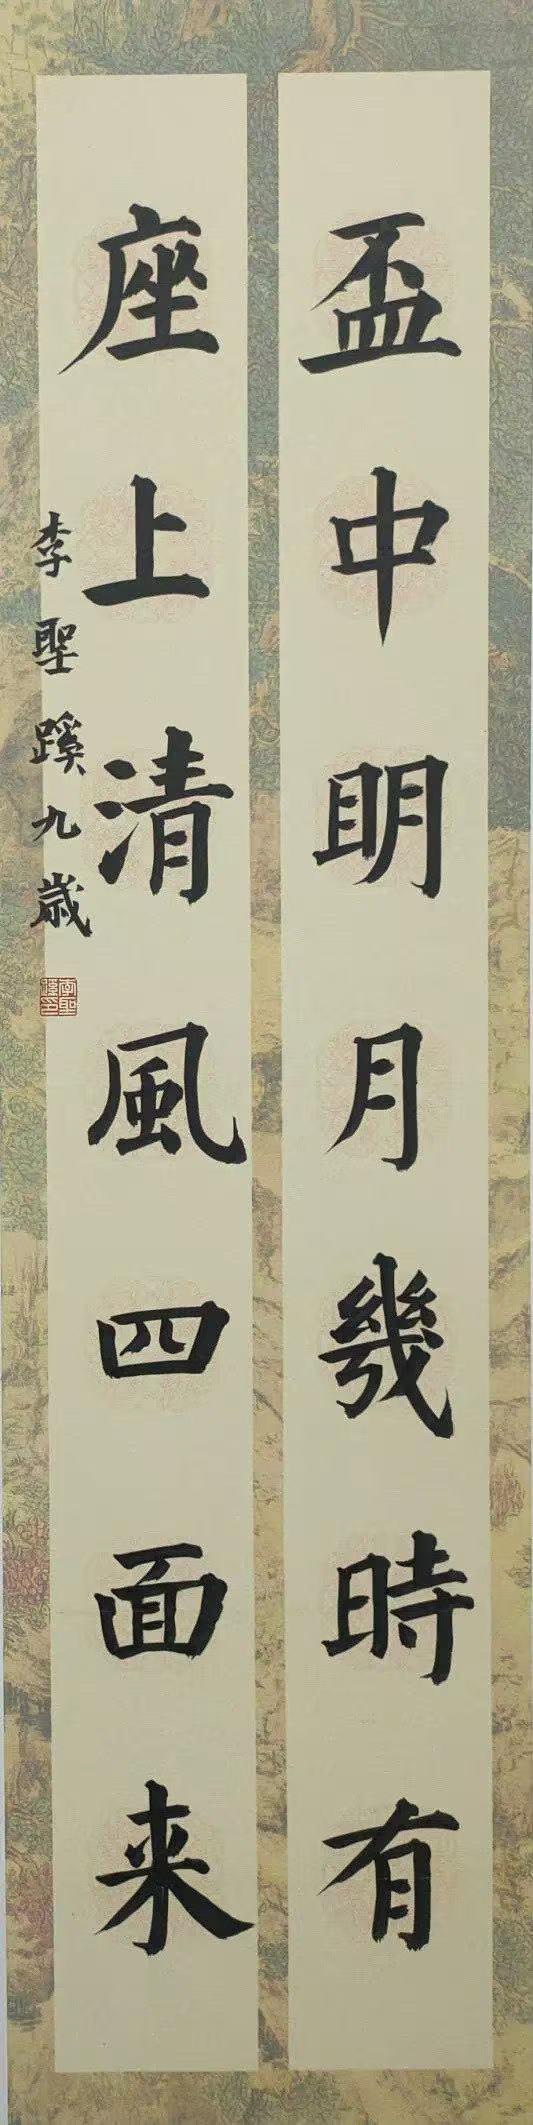 盃中明月幾時有
座上清風四面来
李聖蹊九歳